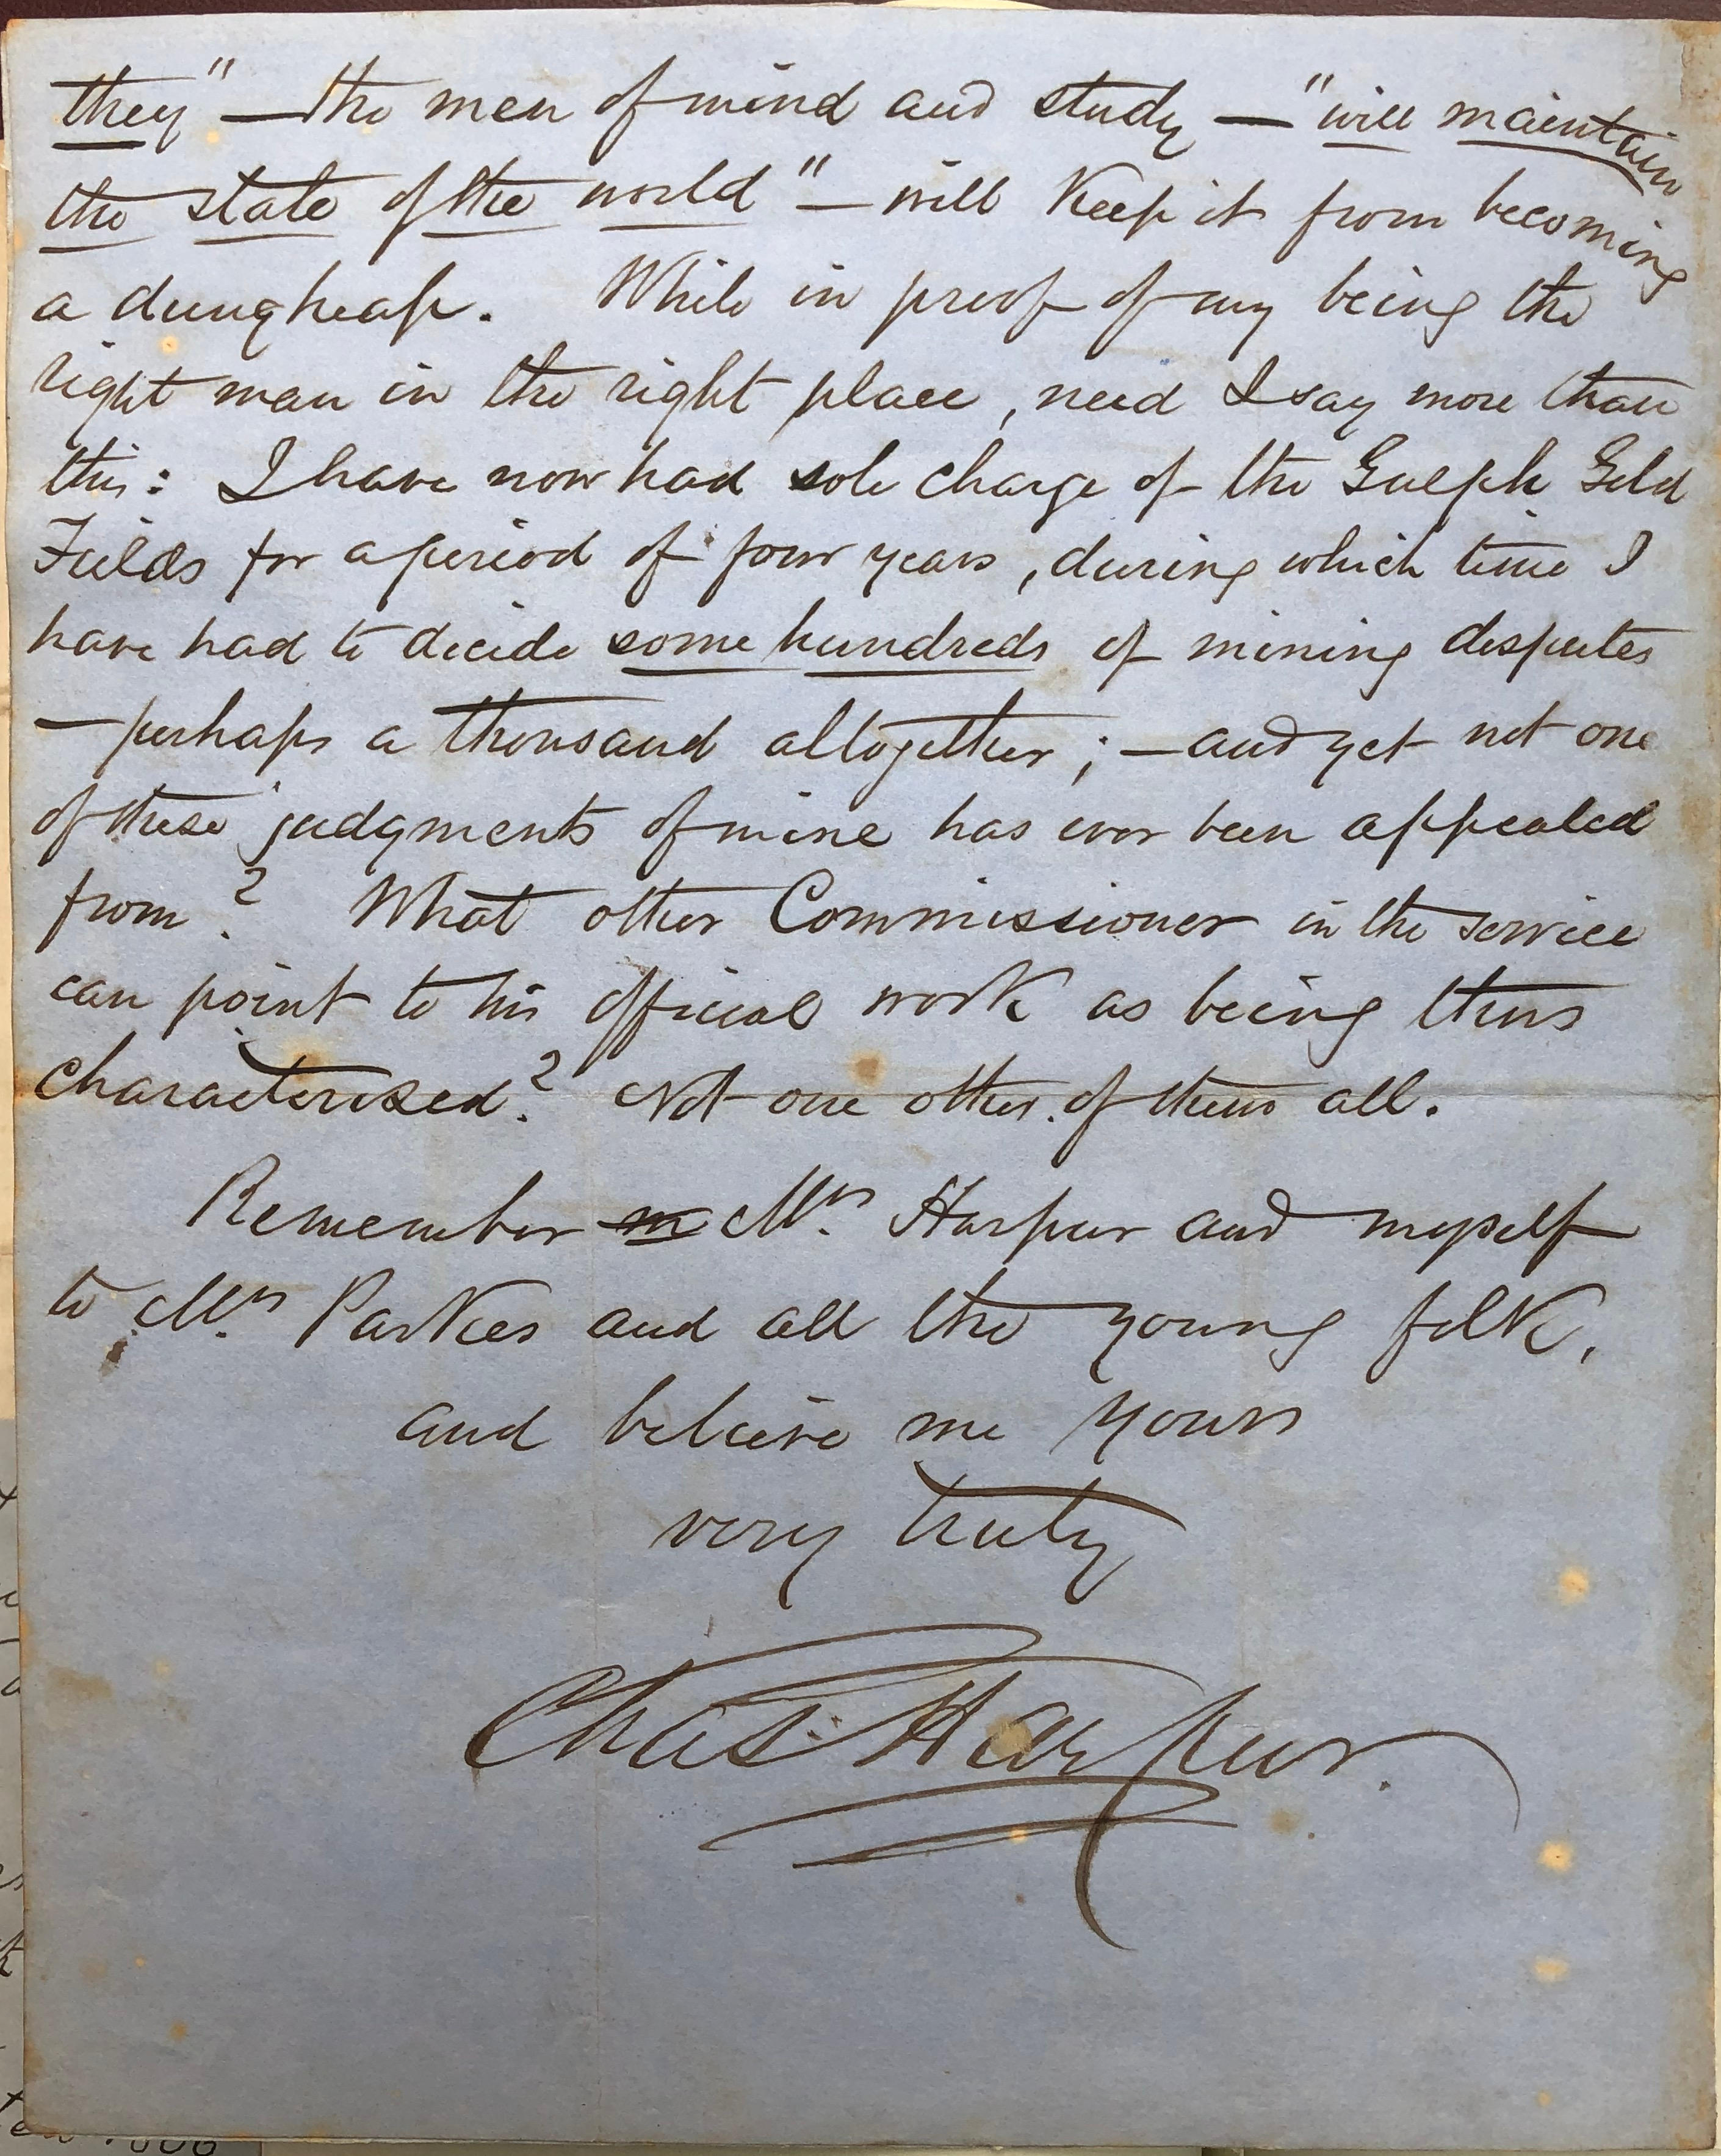 they" — the men of mind and study — "will maintain
the state of the world" — will Keep it from becoming
a dungheap. While in proof of my being the
right man in the right place, need I say more than
this: I have now had sole charge of the Gulph Gold
Fields for a period of four years, during which time I
have had to decide some hundreds of mining disputes
— perhaps a thousand altogether; — and yet not one
of these judgments of mine has ever been appealed
from? What other Commissioner in the service
can point to his official work as being thus
characterized? Not one other of them all.
Remember m Mrs. Harpur and myself
to Mrs. Parkes and all the young folk,
and beleive me yours
very truly
Chas. Harpur.